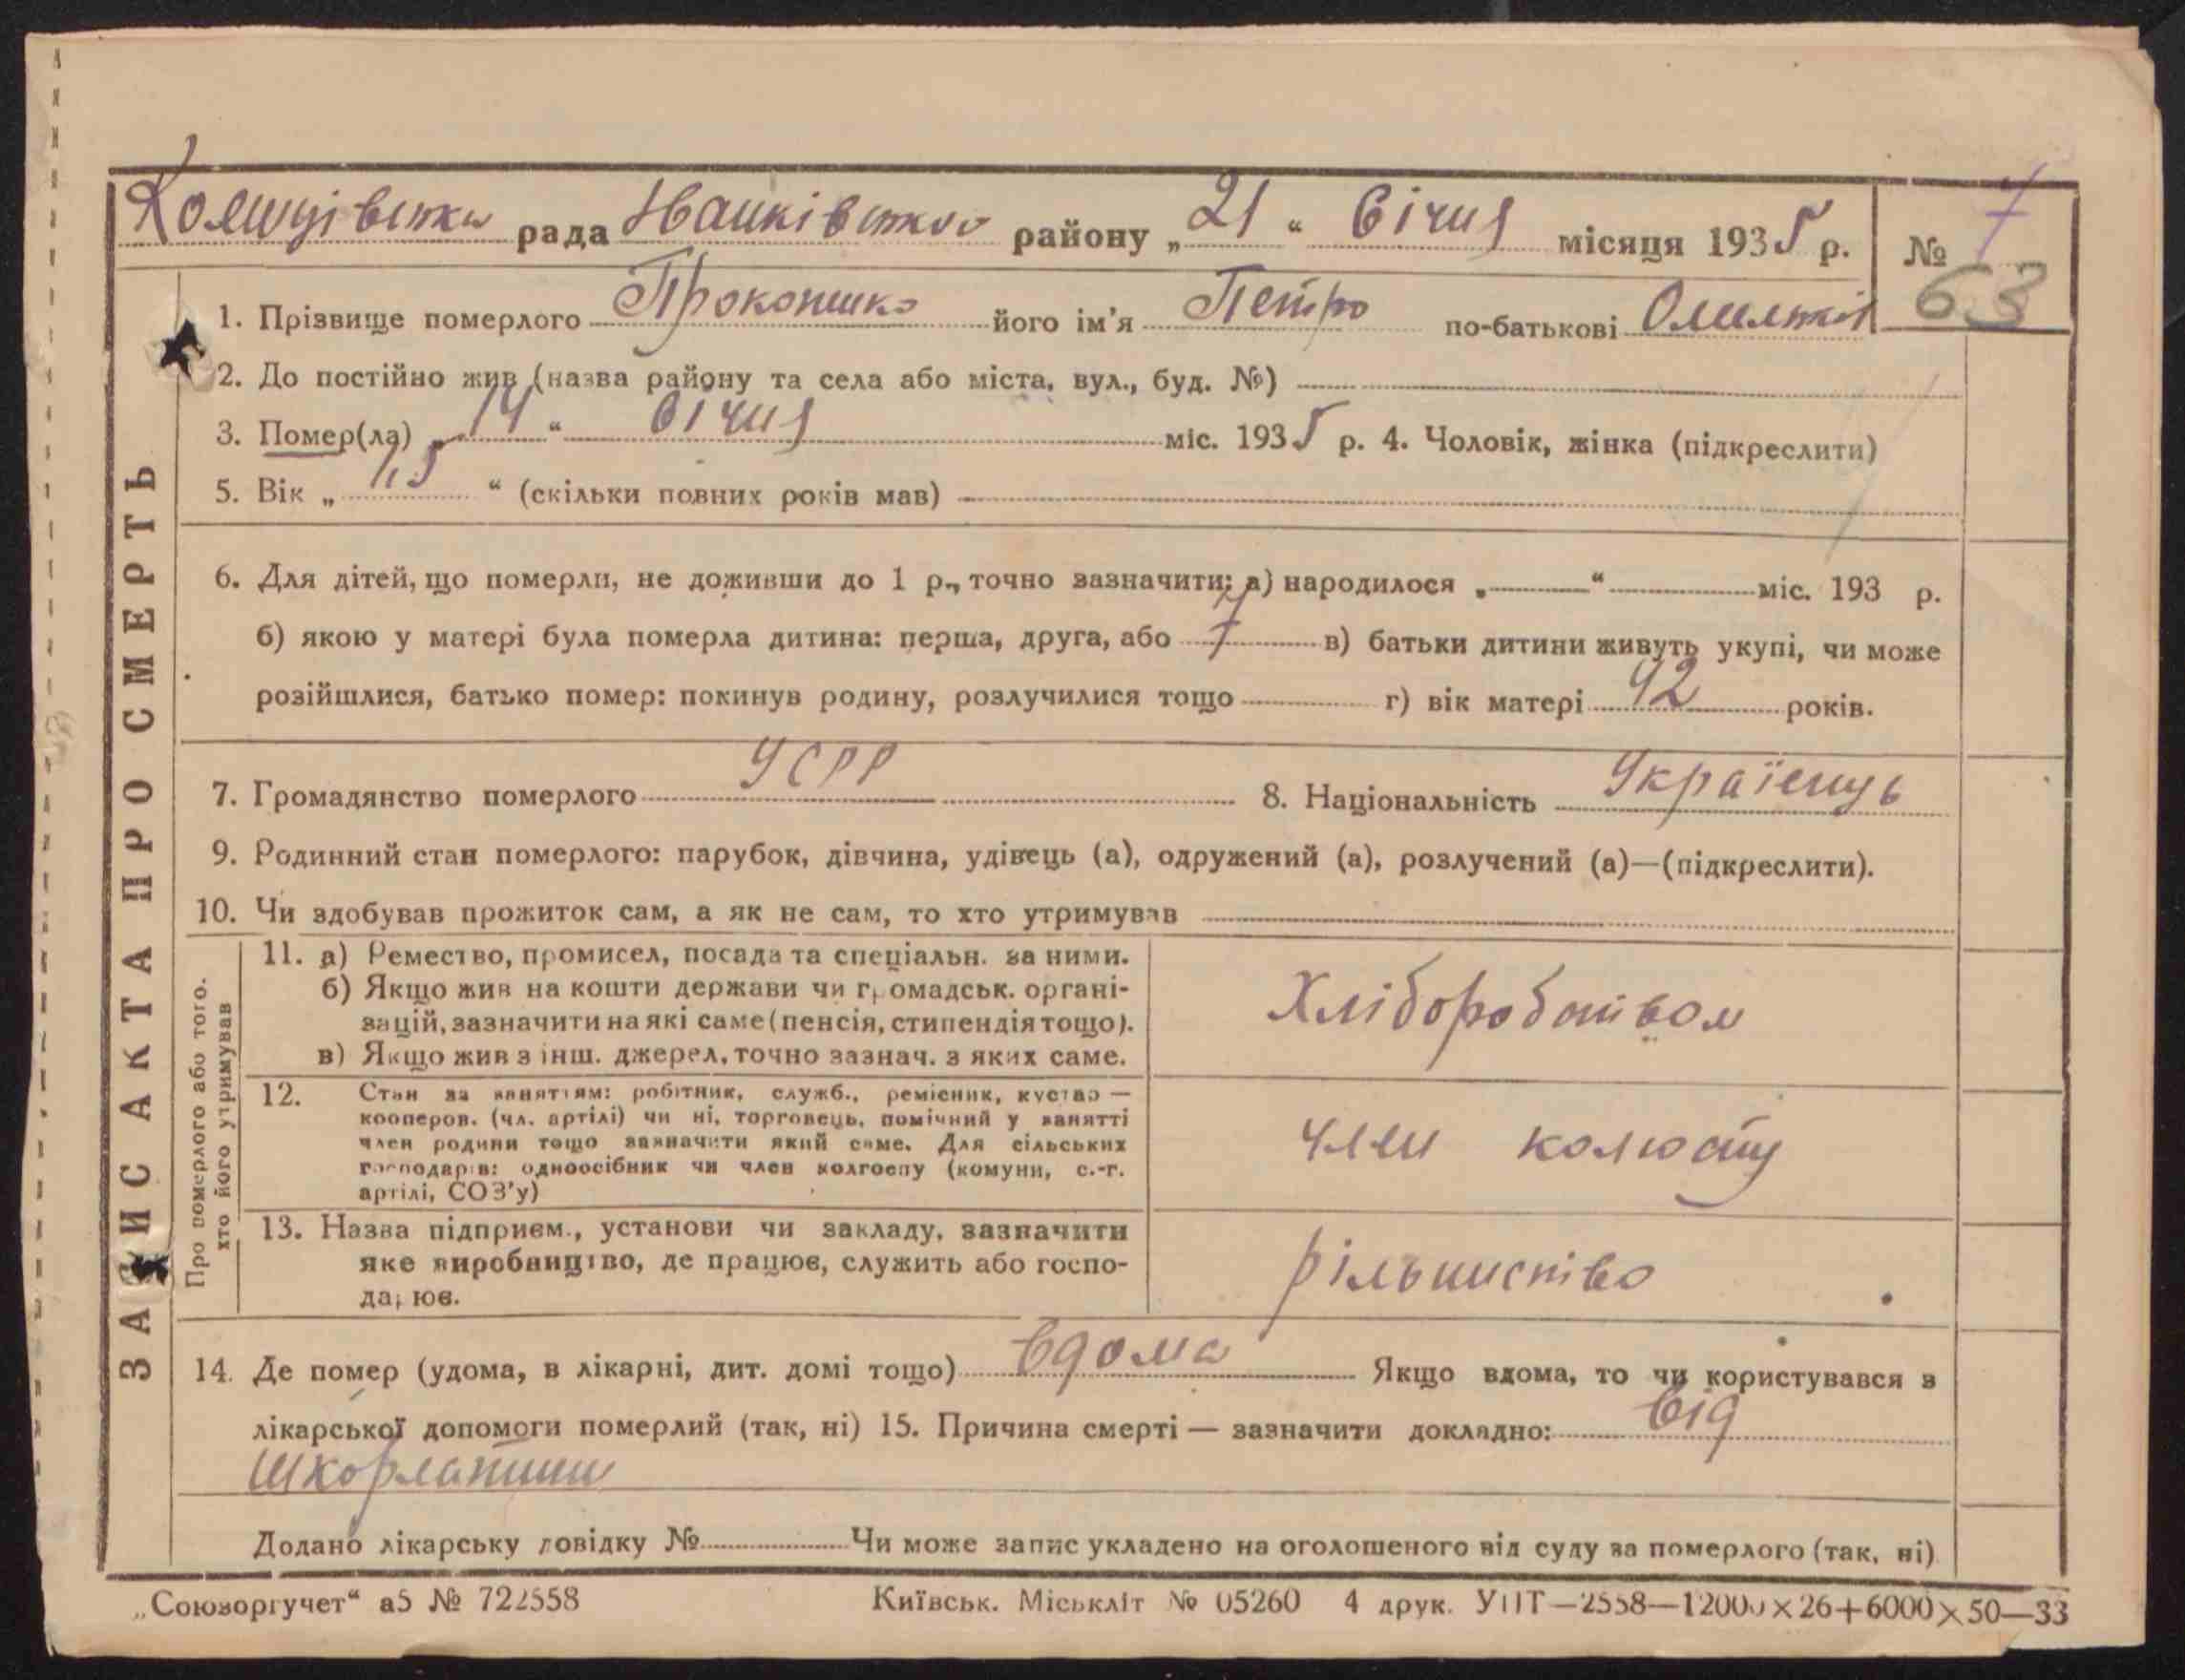 рада району „21“ Січня місяця 1935 р. № 7
63
1. Прізвище померлого його ім'я Петро по-батькові
2. До постійно жив (назва району та села або міста, вул., буд. №)
3. Помер(ла) „14“ січня міс. 1935 р. 4. Чоловік, жінка (підкреслити)
5. Вік „ “ (скільки повних років мав)
6. Для дітей, що померли, не доживши до 1 р., точно зазначити: а) народилося „ “ міс. 193 р.
б) якою у матері була померла дитина: перша, друга, або 7 в) батьки дитини живуть укупі, чи може
розійшлися, батько помер: покинув родину, розлучилися тощо г) вік матері 42 років.
7. Громадянство померлого УСРР 8. Національність Українець
9. Родинний стан померлого: парубок, дівчина, удівець (а), одружений (а), розлучений (а)—(підкреслити).
10. Чи здобував прожиток сам, а як не сам, то хто утримував
Про померлого або того.
хто його утримував
11. а) Ремество, промисел, посада та спеціальн. за ними.
б) Якщо жив на кошти держави чи громадськ. органі-
зацій, зазначити на які саме (пенсія, стипендія тощо).
в) Якщо жив з інш. джерел, точно зазнач. з яких саме.
Хліборобством
12. Стан за заняттям: робітник, служб., ремісник, кустар —
кооперов. (чл. артілі) чи ні, торговець, помічний у занятті
член родини тощо зазначити який саме. Для сільських
господарів: одноосібник чи член колгоспу (комуни, с.-г.
артілі, СОЗ'у)
член
13. Назва підприєм., установи чи закладу, зазначити
яке виробництво, де працює, служить або госпо-
дарює.
рільництво
14. Де помер (удома, в лікарні, дит. домі тощо) вдома Якщо вдома, то чи користувався з
лікарської допомоги померлий (так, ні) 15. Причина смерті — зазначити докладно: від
шкорлатини
Додано лікарську довідку № Чи може запис укладено на оголошеного від суду за померлого (так, ні)
ЗАПИС АКТА ПРО СМЕРТЬ
„Союзоргучет“ а5 № 722558 Київськ. Міськліт № 05260 4 друк. УПТ—2558—12000×26+6000×50—33